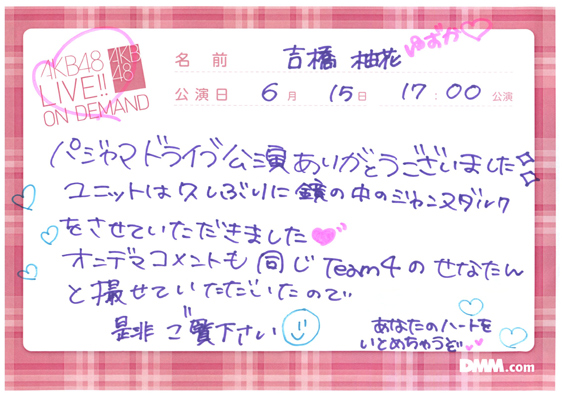 AKB48
LIVE!!
ON DEMAND
AKB
48
名前 吉橋 柚花 ゆずか♡
公演日 6月 15日 17:00 公演
パジャマドライブ公演ありがとうございました
ユニットは久しぶりに鏡の中のジャンヌダルク
をさせていただきました
オンデマコメントも同じTeam4のせなたん
と撮せていただいたので
是非ご覧下さい
あなたのハートを
いとめちゃうぞ
DMM.com